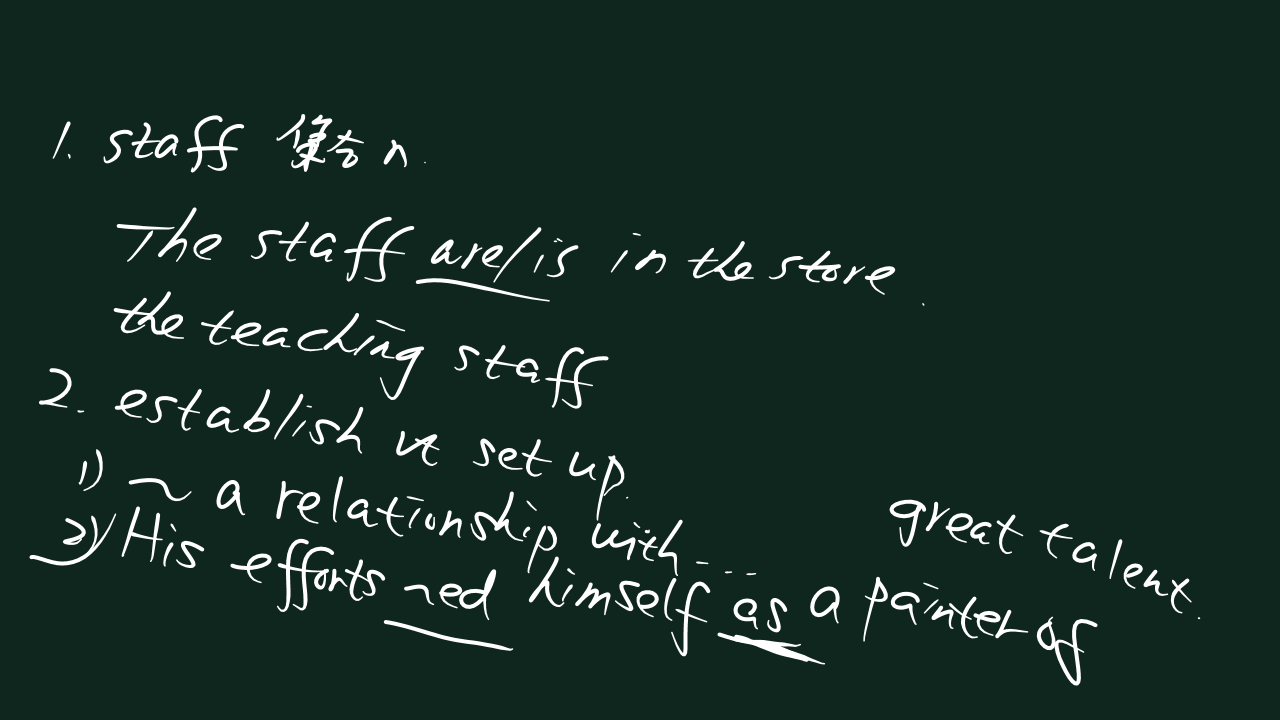 1. staff 集合 n.
The staff are/is in the store.
the teaching staff
2. establish vt set up.
1) ~ a relationship with ....
2) His efforts ~ed himself as a painter of
great talent.